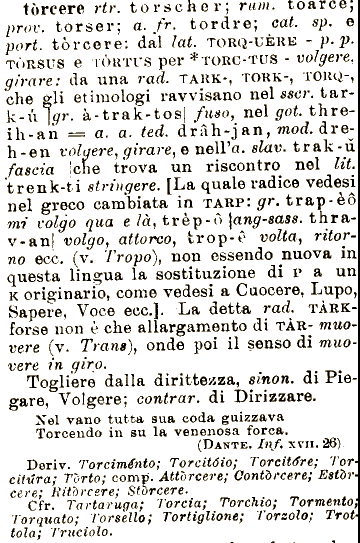 tòrcere rtr. torscher; rum. toarce;
prov. torser; a. fr. tordre; cat. sp. e
port. tòrcere: dal lat. TORQ-UÈRE - p. p.
TÒRSUS e TÒRTUS per *TORC-TUS - volgere,
girare: da una rad. TARK-, TORK-, TORQ-,
che gli etimologi ravvisano nel sscr. tar-
k-ú [gr. à-trak-tos] fuso, nel got. thre-
ih-an = a. a. ted. drâh-jan, mod. dre-
h-en volgere, girare, e nell'a. slav. trak-ú
fascia [che trova un riscontro nel lit.
trenk-ti stringere. [La quale radice vedesi
nel greco cambiata in TARP: gr. trap-èô
mi volgo qua e là, trèp-ô [ang-sass. thra-
v-an] volgo, attorco, trop-ê volta, ritor-
no ecc. (v. Tropo), non essendo nuova in
questa lingua la sostituzione di P a un
K originario, come vedesi a Cuocere, Lupo,
Sapere, Voce ecc.]. La detta rad. TÀRK-
forse non è che allargamento di TÀR- muo-
vere (v. Trans), onde poi il senso di muo-
vere in giro.
Togliere dalla dirittezza, sinon. di Pie-
gare, Volgere; contrar. di Dirizzare.
Nel vano tutta sua coda guizzava
Torcendo in su la venenosa forca.
(DANTE. Inf. XVII. 26).
Deriv. Torciménto; Torcitóio; Torcitóre; Tor-
citúra; Tòrto; comp. Attòrcere; Contòrcere; Estòr-
cere; Ritòrcere; Stòrcere.
Cfr. Tartaruga; Torcia; Torchio; Tormento;
Torquato; Torsello; Tortiglione; Torzolo; Trot-
tola; Truciolo.